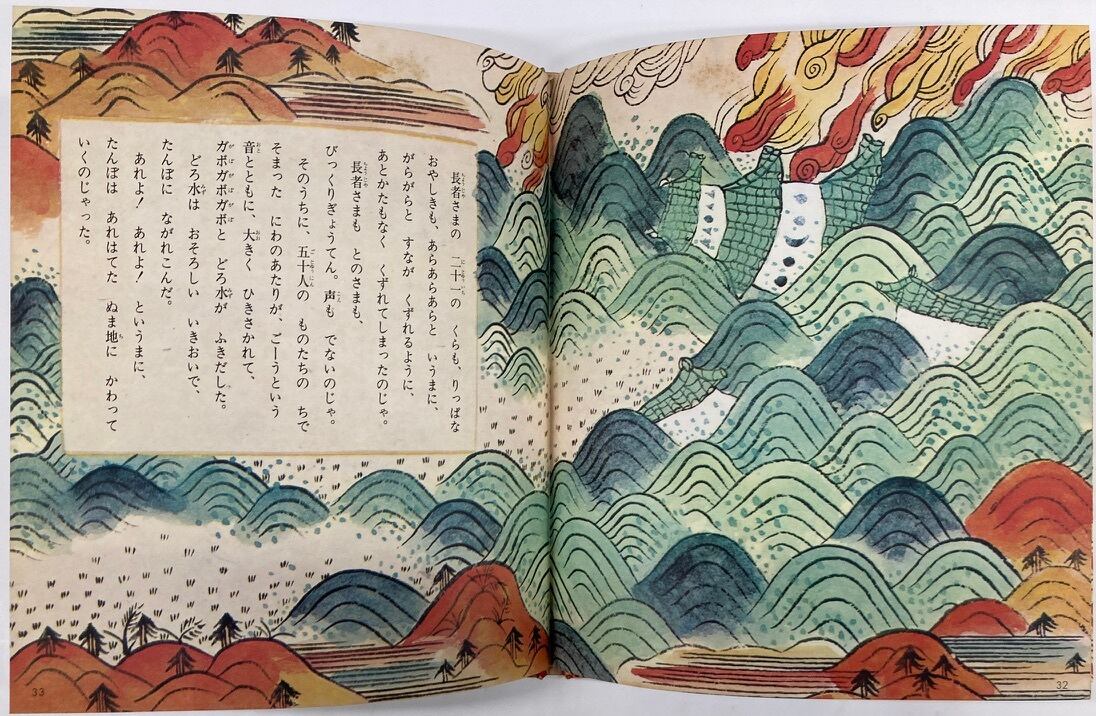 長者さまの　二十一の　くらも、りっぱな
おやしきも、あらあらあらと　いうまに、
がらがらと　すなが　くずれるように、
あとかたもなく　くずれてしまったのじゃ。
長者さまも　とのさまも、
びっくりぎょうてん。声も　でないのじゃ。
そのうちに、五十人の　ものたちの　ちで
そまった　にわのあたりが、ごーうという
音とともに、大きく　ひきさかれて、
ガボガボガボと　どろ水が　ふきだした。
どろ水は　おそろしい　いきおいで、
たんぼに　ながれこんだ。
あれよ！　あれよ！　というまに、
たんぼは　あれはてた　ぬま地に　かわって
いくのじゃった。
33
32